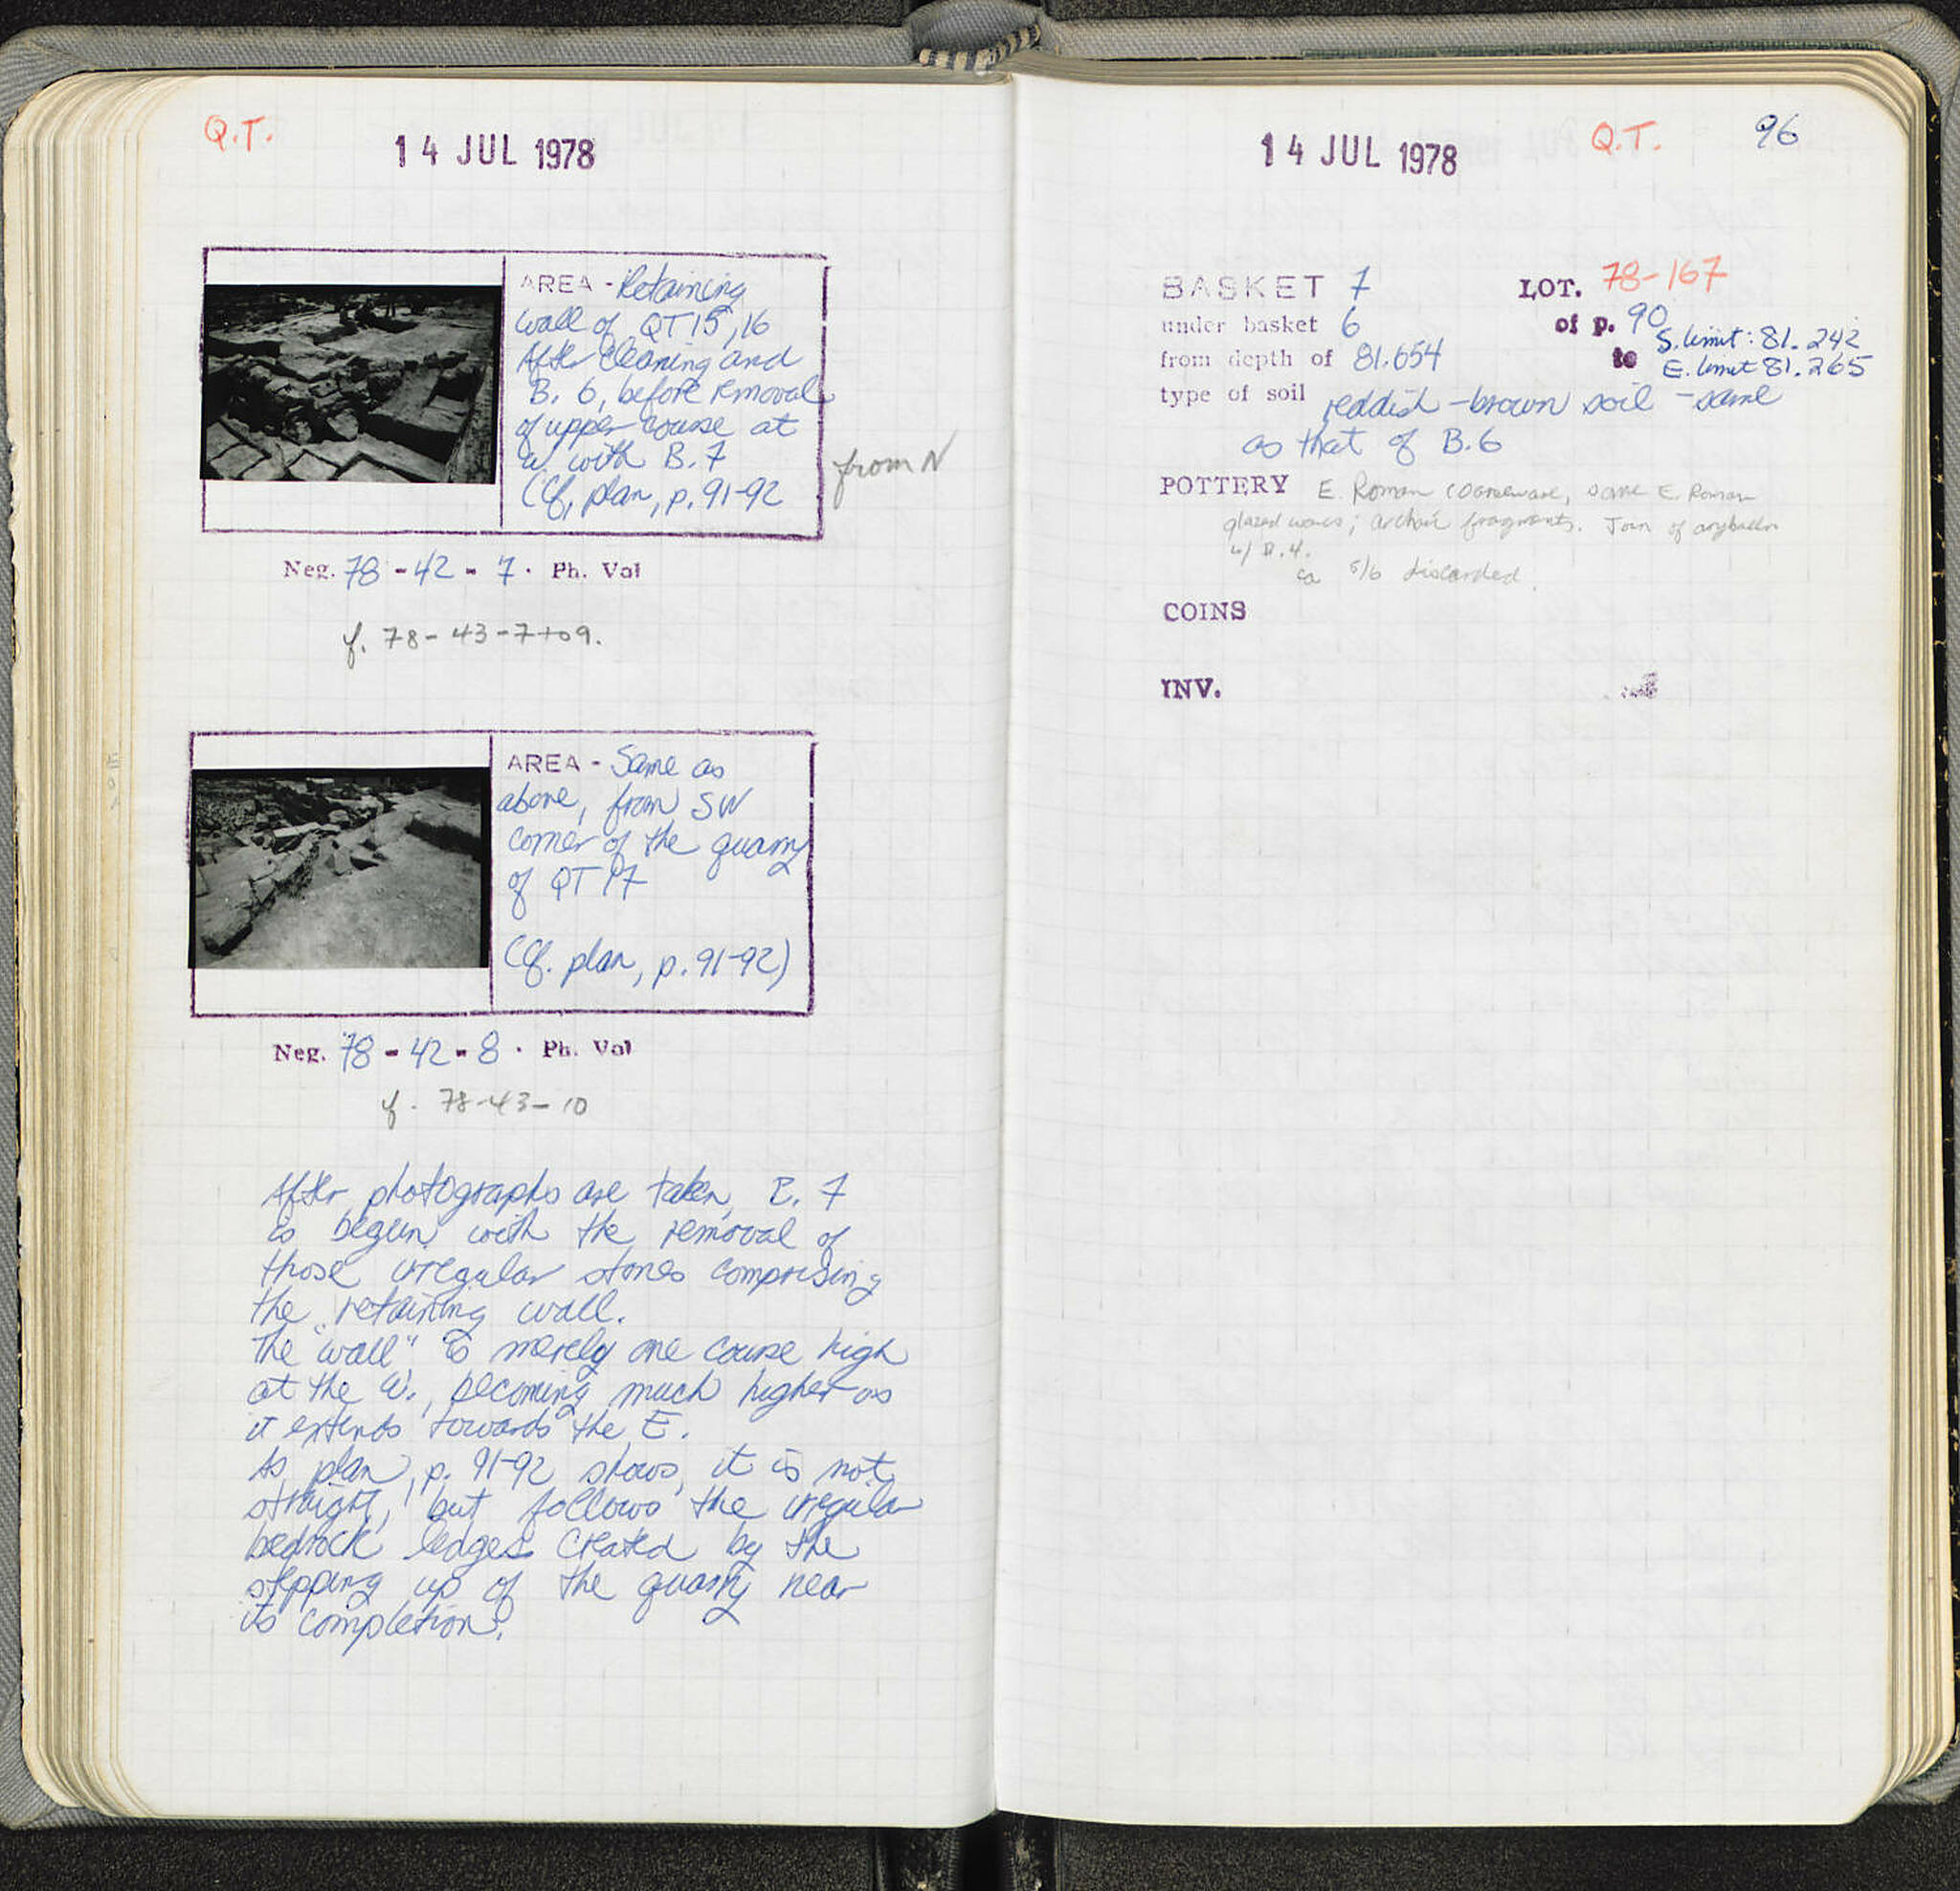 Q.T.
14 JUL 1978
AREA - Retaining
wall of QT 15, 16
After cleaning and
B. 6, before removal
of upper course at
W. with B. 7
(Cf. plan, p. 91-92
from N
Neg. 78 - 42 - 7 . Ph. Vol
cf. 78 - 43 - 7 to 9.
AREA - Same as
above, from SW
corner of the quarry
of QT 17
(Cf. plan, p. 91-92)
Neg. 78 - 42 - 8 . Ph. Vol
cf. 78-43-10
After photographs are taken, B. 7
is begun with the removal of
those irregular stones comprising
the retaining wall.
The "wall" is merely one course high
at the W., becoming much higher as
it extends towards the E.
As plan, p. 91-92 shows, it is not
straight, but follows the irregular
bedrock ledges created by the
stepping up of the quarry near
its completion.
14 JUL 1978 Q.T. 96
BASKET 7 LOT. 78-167
under basket 6 of p. 90
from depth of 81.654 to S. limit: 81.242
E. limit 81.265
type of soil reddish-brown soil - same
as that of B.6
POTTERY E. Roman coarseware, some E. Roman
glazed wares; archaic fragments. Join of aryballos
w/ B. 4.
ca 5/6 discarded.
COINS
INV.